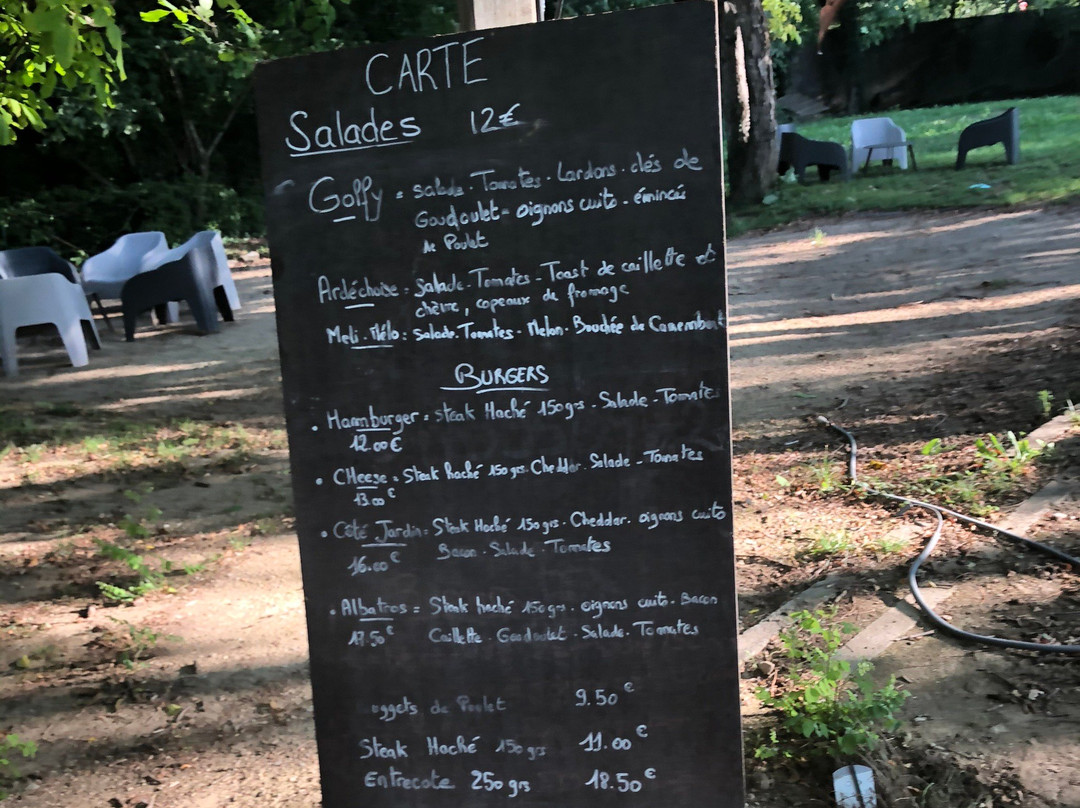 CARTE
Salades 12€
Golfy = salade. Tomates. Lardons. clés de
Goudoulet = oignons cuits - émincés
de Poulet
Ardéchoise = Salade. Tomates - Toast de caillette et
chèvre, copeaux de fromage
Meli. Mélo : salade. Tomates - Melon. Bouchée de Camembert
BURGERS
. Hamburger = Steak Haché 150grs - Salade - Tomates
12.00€
. CHeese = Steak haché 150grs. Cheddar. Salade - Tomates
13.00€
. Côté Jardin = Steak Haché 150grs. Cheddar. oignons cuits
Bacon. Salade. Tomates
16.00€
. Albatros = Steak haché 150grs. oignons cuits. Bacon
Caillette. Goudoulet. Salade. Tomates
uggets de Poulet 9.50€
Steak Haché 150grs 11.00€
Entrecote 250grs 18.50€